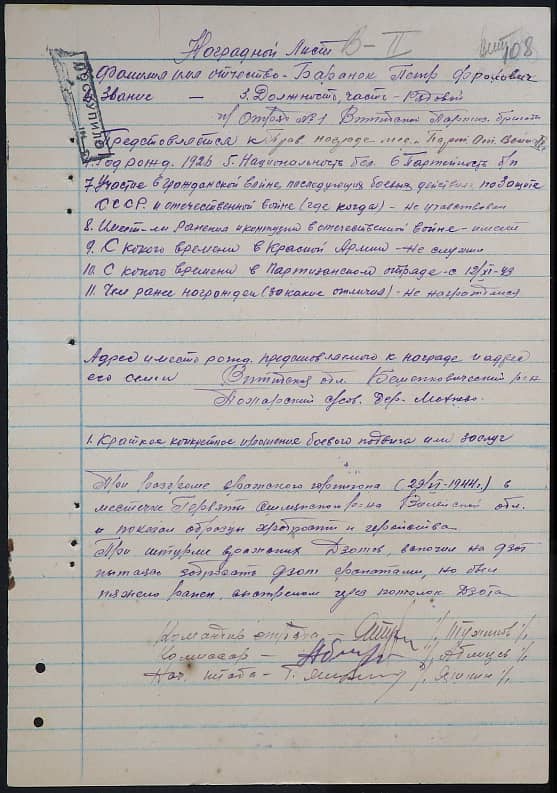 Наградной Лист В-II
108
1. Фамилия имя отчество - Баранок Петр Фролович
2. Звание — 3. Должность, часть - Рядовой
п/ Отряд №1 Витебской Партиз. бригады
Представляется к Прав. награде мед. Парт. От. Войны II
4. Год рожд. 1926 5. Национальность бел. 6 Партийность б/п
7. Участие в гражданской войне, последующих боевых действиях по защите
СССР и отечественной войне (где когда) - не участвовал
8. Имеет-ли ранения и контузии в отечественной войне - имеет
9. С кокого времени в Красной Армии - Не служил
10. С кокого времени в Партизанском отряде - с 12/XI-43
11. Чем ранее награжден (за какие отличия) - не награждался
Адрес и место рожд. представляемого к награде и адрес
его семьи Витебская обл. р-н
дер.
1. Краткое конкретное изложение боевого подвига или заслуг
При разгроме вражеского гарнизона (29/VI-1944г.) в
местечке р-на обл.
и показал образцы храбрости и геройства
При штурме вражеских Дзотов, вскочил на дзот
пытаясь забросать дзот гранатами, но был
тяжело ранен, выстрелом через потолок Дзота
Командир отряда -
Комиссар -
Нач. штаба -